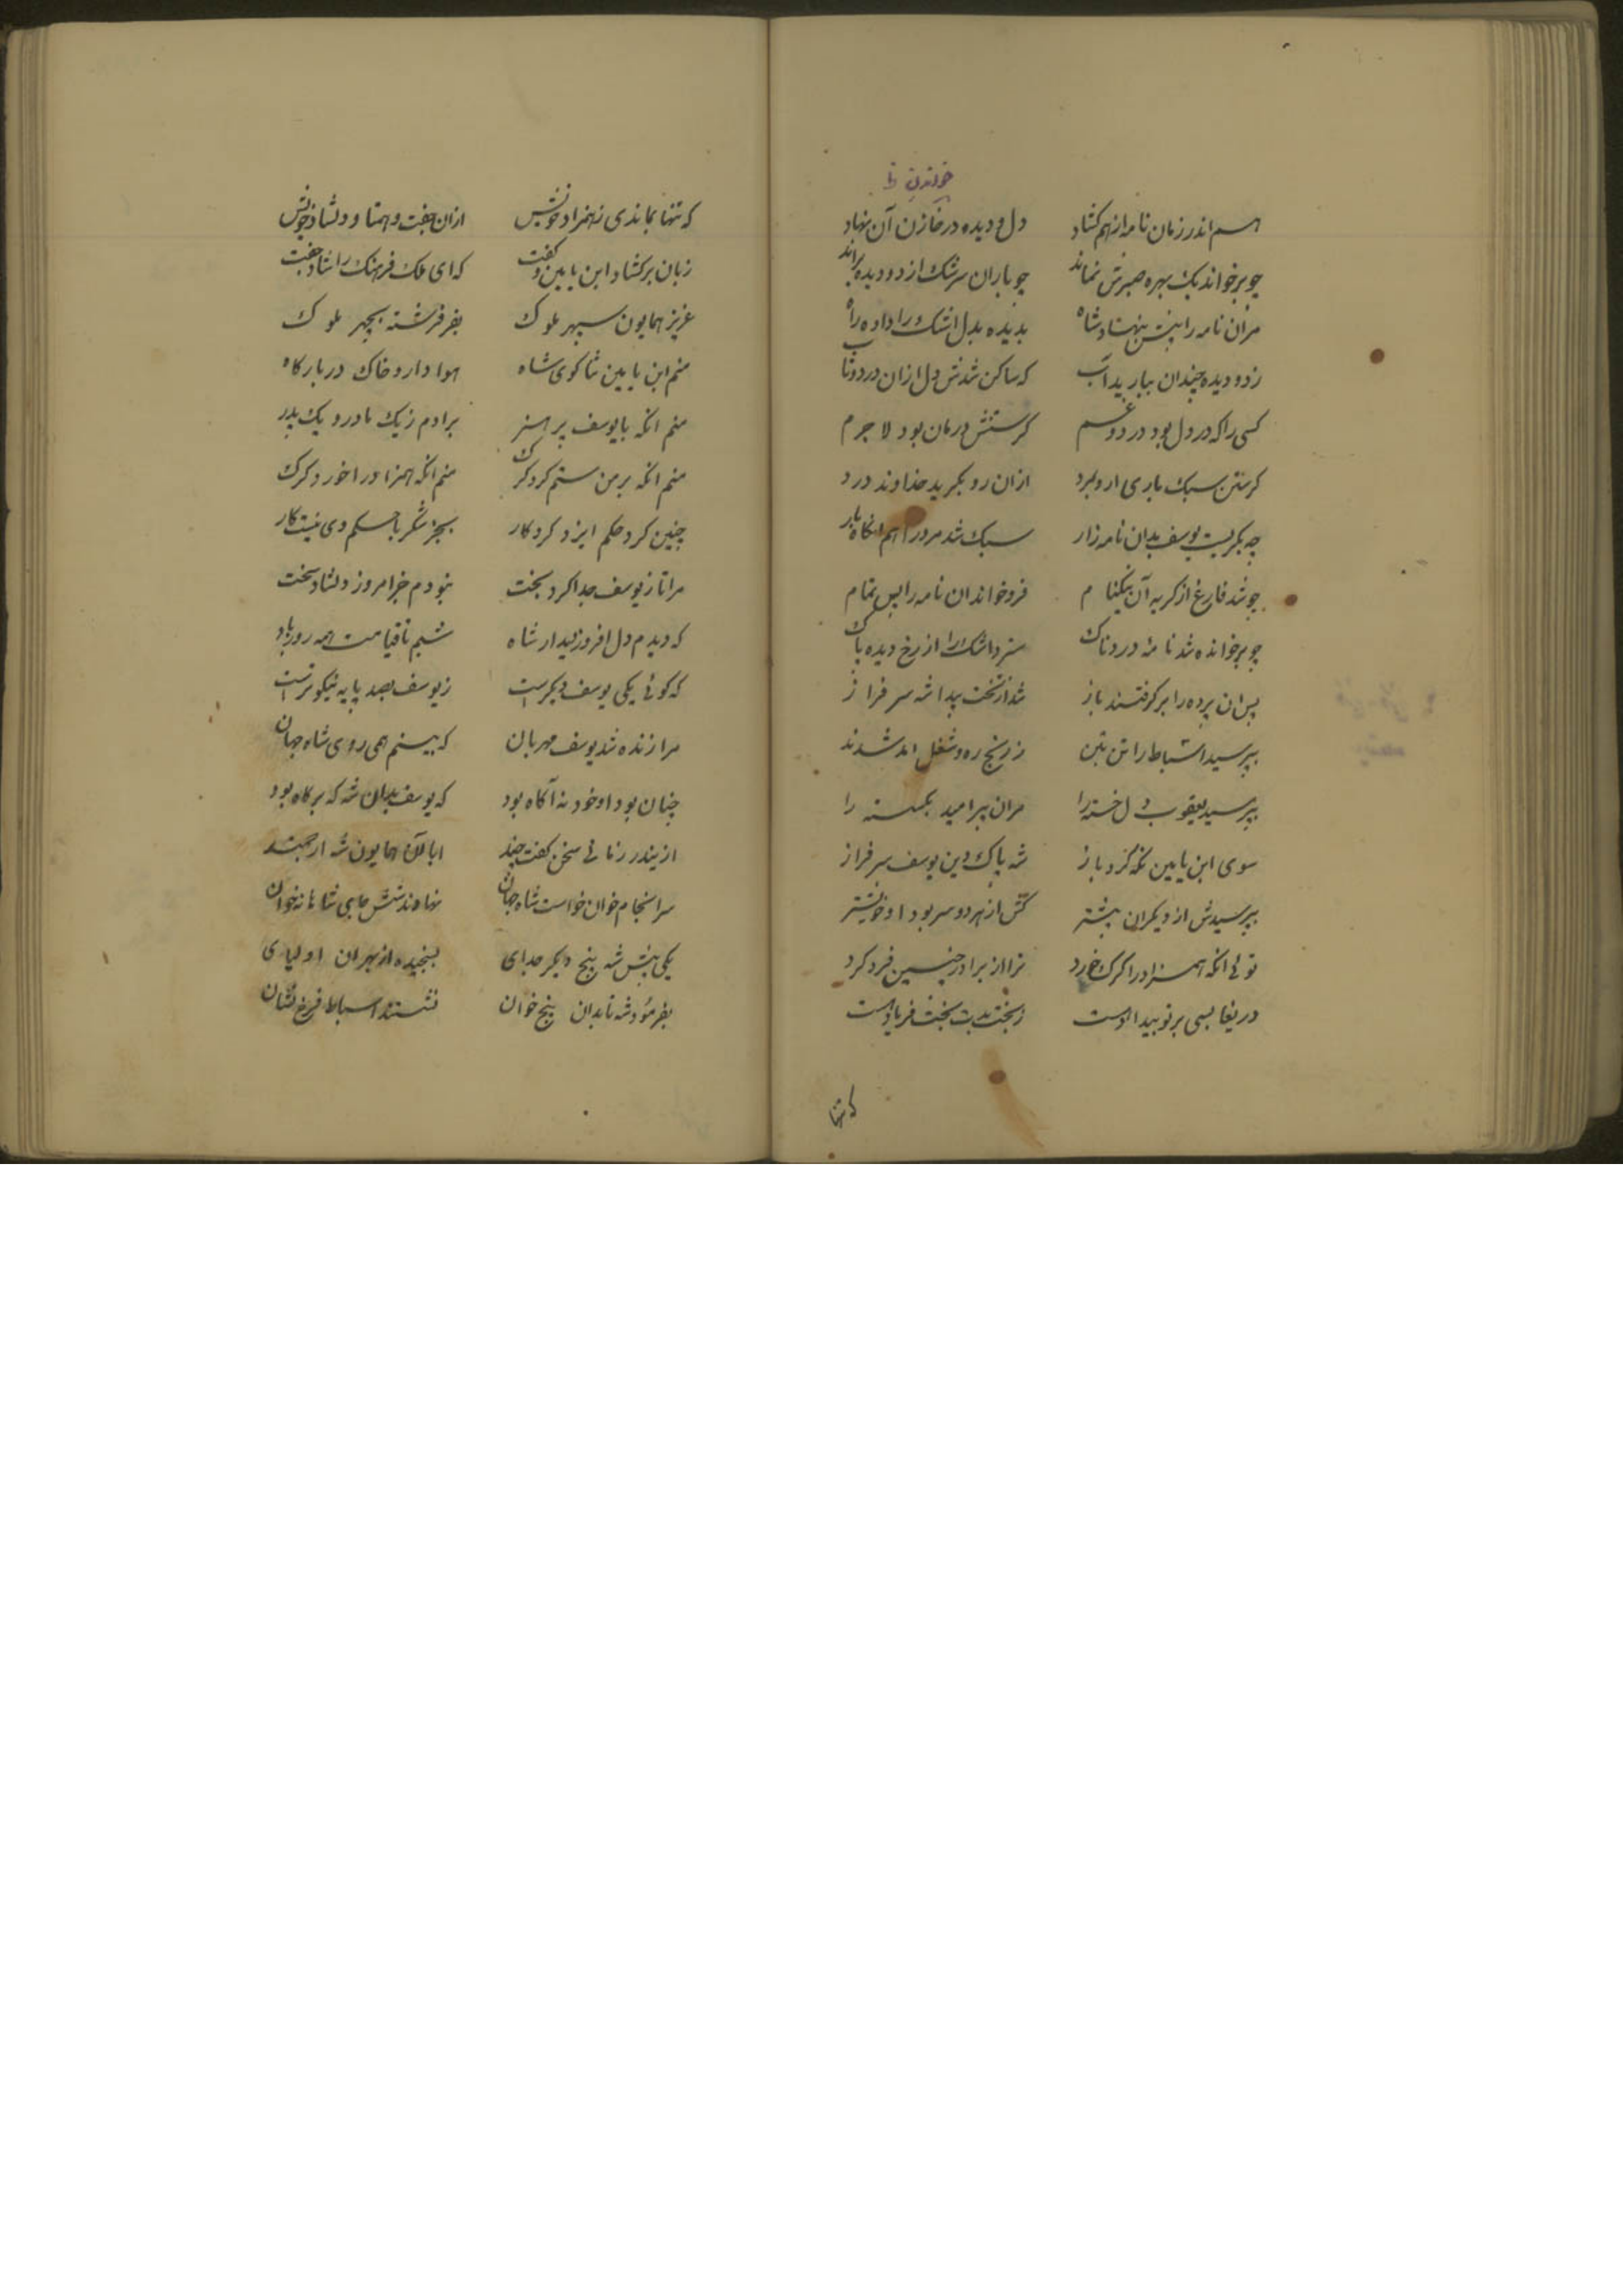 خواندن
هم اندر زمان نامه از هم کشاد دل و دیده در خازن آن نهاد
چو برخواند یک بهره صبرش نماند چو باران سرشک از دو دیده براند
مران نامه را پیش بنهاد شاه بدیده بدل اشک را داده راه
ز دو دیده چندان ببارید آب که ساکن شدش دل ازان درد و تاب
کسی را که در دل بود درد و غم کرستنش درمان بود لا جرم
کرستن سبک باری ارد بمرد ازان رو بکرید خداوند درد
چه بکریست یوسف بدان نامه زار سبک شد مرورا هم انکاه بار
چو شد فارغ از کریه آن نیکنام فرو خواند ان نامه را پس تمام
چو برخوانده شد نامهٔ دردناک سترد اشک را از رخ و دیده پاک
پس ان پرده را بر کرفتند باز شد از تخت پیدا شه سر فراز
بپرسید اسباط را تن بتن ز رنج ره و شغل
بپرسید یعقوب دل خسته را مران پیر امید بکسسته را
سوی ابن یامین نکه کرد باز شه پاک دین یوسف سرفراز
بپرسیدش از دیکران پیشتر کش از هر دو سر بود او خویشتر
توئی انکه همزاد را کرک خورد ترا از برادر چنین فرد کرد
دریغا بسی بر تو بیداد است ز بخت بدت سخت فریاد است
که تنها
که تنها بماندی ز همزاد خویش ازان جفت و همتا و دلشاد خویش
زبان بر کشاد ابن یامین و کفت که ای ملک فرهنک را شاد جفت
عزیز همایون سپهر ملوک بفر فرشته بچهر ملوک
منم ابن یامین ثنا کوی شاه هوا دار و خاک در بارکاه
منم انکه با یوسف پر هنر برادم ز یک مادر و یک پدر
منم انکه بر من ستم کرد کرک منم انکه همزاد را خورد کرک
چنین کرد حکم ایزد کردکار بجز شکر با حکم وی نیست کار
مرا تا ز یوسف جدا کرد بخت نبودم جز امروز دلشاد سخت
که دیدم دل افروز دیدار شاه شبم تا قیامت همه روز باد
که کوئی یکی یوسف دیکرست ز یوسف بصد پایه نیکوترست
مرا زنده شد یوسف مهربان که بینم همی روی شاه جهان
چنان بود او خود نه آکاه بود که یوسف بدان شه که بر کاه بود
ازیندر زمانی سخن کفت چند ابا آن همایون شه ارجمند
سرانجام خوان خواست شاه جهان نهادند شش جای شاهانه خوان
یکی پیش شه پنج دیکر جدای بسنجیده از بهر ان اولیای
بفرمود شه تا بدان پنج خوان نشستند اسباط فرخ نشان